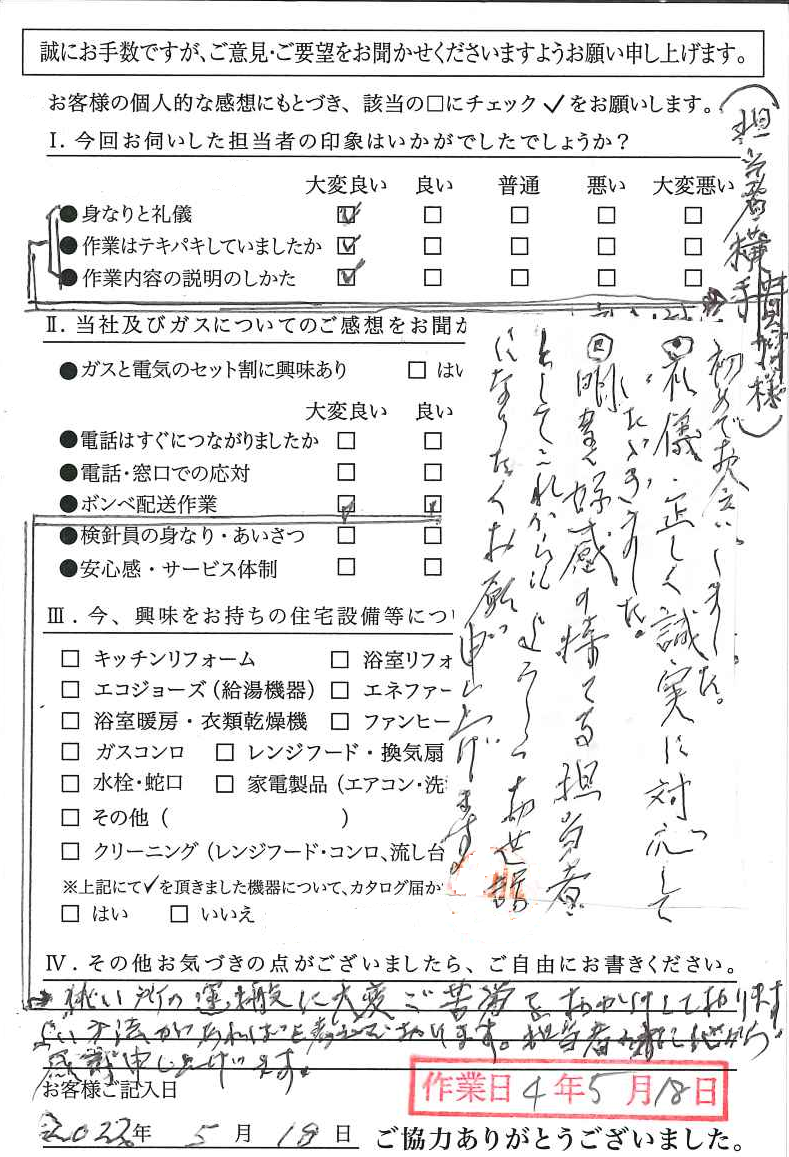 誠にお手数ですが、ご意見・ご要望をお聞かせくださいますようお願い申し上げます。
お客様の個人的な感想にもとづき、該当の□にチェック✓をお願いします。
Ⅰ. 今回お伺いした担当者の印象はいかがでしたでしょうか?
大変良い 良い 普通 悪い 大変悪い
●身なりと礼儀 ☑ □ □ □ □
●作業はテキパキしていましたか ☑ □ □ □ □
●作業内容の説明のしかた ☑ □ □ □ □
(担当者横手 様)
Ⅱ. 当社及びガスについてのご感想をお聞か
●ガスと電気のセット割に興味あり □ はい
大変良い 良い
●電話はすぐにつながりましたか □ □
●電話・窓口での応対 □ □
●ボンベ配送作業 □ □
●検針員の身なり・あいさつ □ □
●安心感・サービス体制 □ □
初めてお会いしました。
礼儀正しく誠実に対応して
いただきました。
明るく好感の持てる担当者
としてこれからもよろしくお世話
になりたくお願い申し上げます。
Ⅲ. 今、興味をお持ちの住宅設備等につ
□ キッチンリフォーム □ 浴室リフォ
□ エコジョーズ(給湯機器) □ エネファー
□ 浴室暖房・衣類乾燥機 □ ファンヒー
□ ガスコンロ □ レンジフード・換気扇
□ 水栓・蛇口 □ 家電製品(エアコン・洗
□ その他( )
□ クリーニング(レンジフード・コンロ、流し台
※上記にて✓を頂きました機器について、カタログ届か
□ はい □ いいえ
Ⅳ. その他お気づきの点がございましたら、ご自由にお書きください。
狭い所の運搬に大変ご苦労をおかけしております
良い方法があればと考えております。担当者
感謝申し上げます。
お客様ご記入日
作業日 4年5月18日
2022年 5月 18日
ご協力ありがとうございました。